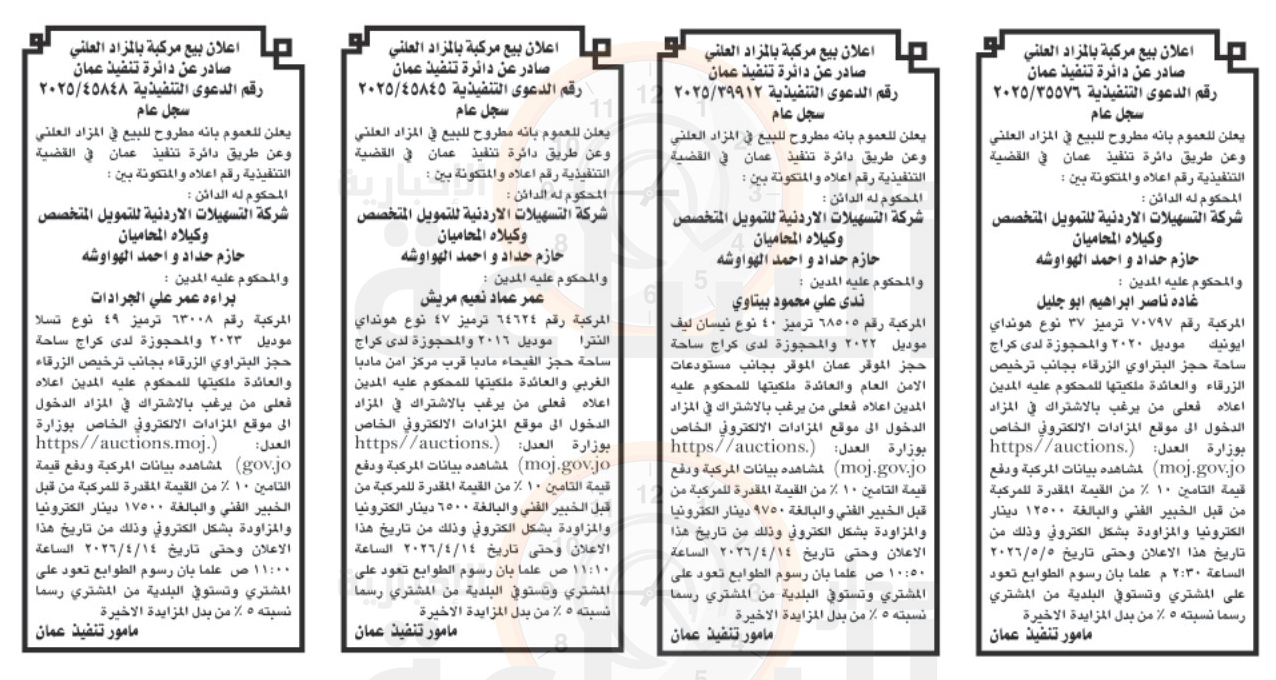 اعلان بيع مركبة بالمزاد العلني
صادر عن دائرة تنفيذ عمان
رقم الدعوى التنفيذية ٢٠٢٥/٣٥٥٧٦
سجل عام
يعلن للعموم بانه مطروح للبيع في المزاد العلني
وعن طريق دائرة تنفيذ عمان في القضية
التنفيذية رقم اعلاه والمتكونة بين :
المحكوم له الدائن :
شركة التسهيلات الاردنية للتمويل المتخصص
وكيلاه المحاميان
حازم حداد و احمد الهواوشه
والمحكوم عليه المدين :
غاده ناصر ابراهيم ابو جليل
المركبة رقم ٧٠٧٩٧ ترميز ٣٧ نوع هونداي
ايونيك موديل ٢٠٢٠ والمحجوزة لدى كراج
ساحة حجز البتراوي الزرقاء بجانب ترخيص
الزرقاء والعائدة ملكيتها للمحكوم عليه المدين
اعلاه فعلى من يرغب بالاشتراك في المزاد
الدخول الى موقع المزادات الالكتروني الخاص
بوزارة العدل: (.https//auctions
moj.gov.jo) لمشاهده بيانات المركبة ودفع
قيمة التامين ١٠ ٪ من القيمة المقدرة للمركبة
من قبل الخبير الفني والبالغة ١٢٥٠٠ دينار
الكترونيا والمزاودة بشكل الكتروني وذلك من
تاريخ هذا الاعلان وحتى تاريخ ٢٠٢٦/٥/٥
الساعة ٢:٣٠ م علما بان رسوم الطوابع تعود
على المشتري وتستوفي البلدية من المشتري
رسما نسبته ٥ ٪ من بدل المزايدة الاخيرة
مامور تنفيذ عمان
اعلان بيع مركبة بالمزاد العلني
صادر عن دائرة تنفيذ عمان
رقم الدعوى التنفيذية ٢٠٢٥/٣٩٩١٢
سجل عام
يعلن للعموم بانه مطروح للبيع في المزاد العلني
وعن طريق دائرة تنفيذ عمان في القضية
التنفيذية رقم اعلاه والمتكونة بين :
المحكوم له الدائن :
شركة التسهيلات الاردنية للتمويل المتخصص
وكيلاه المحاميان
حازم حداد و احمد الهواوشه
والمحكوم عليه المدين :
ندى علي محمود بيتاوي
المركبة رقم ٦٨٥٠٥ ترميز ٤٠ نوع نيسان ليف
موديل ٢٠٢٢ والمحجوزة لدى كراج ساحة
حجز الموقر عمان الموقر بجانب مستودعات
الامن العام والعائدة ملكيتها للمحكوم عليه
المدين اعلاه فعلى من يرغب بالاشتراك في المزاد
الدخول الى موقع المزادات الالكتروني الخاص
بوزارة العدل: (.https//auctions
moj.gov.jo) لمشاهده بيانات المركبة ودفع
قيمة التامين ١٠ ٪ من القيمة المقدرة للمركبة من
قبل الخبير الفني والبالغة ٩٧٥٠ دينار الكترونيا
والمزاودة بشكل الكتروني وذلك من تاريخ هذا
الاعلان وحتى تاريخ ٢٠٢٦/٤/١٤ الساعة
١٠:٥٠ ص علما بان رسوم الطوابع تعود على
المشتري وتستوفي البلدية من المشتري رسما
نسبته ٥ ٪ من بدل المزايدة الاخيرة
مامور تنفيذ عمان
اعلان بيع مركبة بالمزاد العلني
صادر عن دائرة تنفيذ عمان
رقم الدعوى التنفيذية ٢٠٢٥/٤٥٨٤٥
سجل عام
يعلن للعموم بانه مطروح للبيع في المزاد العلني
وعن طريق دائرة تنفيذ عمان في القضية
التنفيذية رقم اعلاه والمتكونة بين :
المحكوم له الدائن :
شركة التسهيلات الاردنية للتمويل المتخصص
وكيلاه المحاميان
حازم حداد و احمد الهواوشه
والمحكوم عليه المدين :
عمر عماد نعيم مريش
المركبة رقم ٦٤٦٢٤ ترميز ٤٧ نوع هونداي
النترا موديل ٢٠١٦ والمحجوزة لدى كراج
ساحة حجز الفيحاء مادبا قرب مركز امن مادبا
الغربي والعائدة ملكيتها للمحكوم عليه المدين
اعلاه فعلى من يرغب بالاشتراك في المزاد
الدخول الى موقع المزادات الالكتروني الخاص
بوزارة العدل: (.https//auctions
moj.gov.jo) لمشاهده بيانات المركبة ودفع
قيمة التامين ١٠ ٪ من القيمة المقدرة للمركبة من
قبل الخبير الفني والبالغة ٦٥٠٠ دينار الكترونيا
والمزاودة بشكل الكتروني وذلك من تاريخ هذا
الاعلان وحتى تاريخ ٢٠٢٦/٤/١٤ الساعة
١١:١٠ ص علما بان رسوم الطوابع تعود على
المشتري وتستوفي البلدية من المشتري رسما
نسبته ٥ ٪ من بدل المزايدة الاخيرة
مامور تنفيذ عمان
اعلان بيع مركبة بالمزاد العلني
صادر عن دائرة تنفيذ عمان
رقم الدعوى التنفيذية ٢٠٢٥/٤٥٨٤٨
سجل عام
يعلن للعموم بانه مطروح للبيع في المزاد العلني
وعن طريق دائرة تنفيذ عمان في القضية
التنفيذية رقم اعلاه والمتكونة بين :
المحكوم له الدائن :
شركة التسهيلات الاردنية للتمويل المتخصص
وكيلاه المحاميان
حازم حداد و احمد الهواوشه
والمحكوم عليه المدين :
براءه عمر علي الجرادات
المركبة رقم ٦٣٠٠٨ ترميز ٤٩ نوع تسلا
موديل ٢٠٢٣ والمحجوزة لدى كراج ساحة
حجز البتراوي الزرقاء بجانب ترخيص الزرقاء
والعائدة ملكيتها للمحكوم عليه المدين اعلاه
فعلى من يرغب بالاشتراك في المزاد الدخول
الى موقع المزادات الالكتروني الخاص بوزارة
العدل: (.https//auctions.moj
gov.jo) لمشاهده بيانات المركبة ودفع قيمة
التامين ١٠ ٪ من القيمة المقدرة للمركبة من قبل
الخبير الفني والبالغة ١٧٥٠٠ دينار الكترونيا
والمزاودة بشكل الكتروني وذلك من تاريخ هذا
الاعلان وحتى تاريخ ٢٠٢٦/٤/١٤ الساعة
١١:٠٠ ص علما بان رسوم الطوابع تعود على
المشتري وتستوفي البلدية من المشتري رسما
نسبته ٥ ٪ من بدل المزايدة الاخيرة
مامور تنفيذ عمان